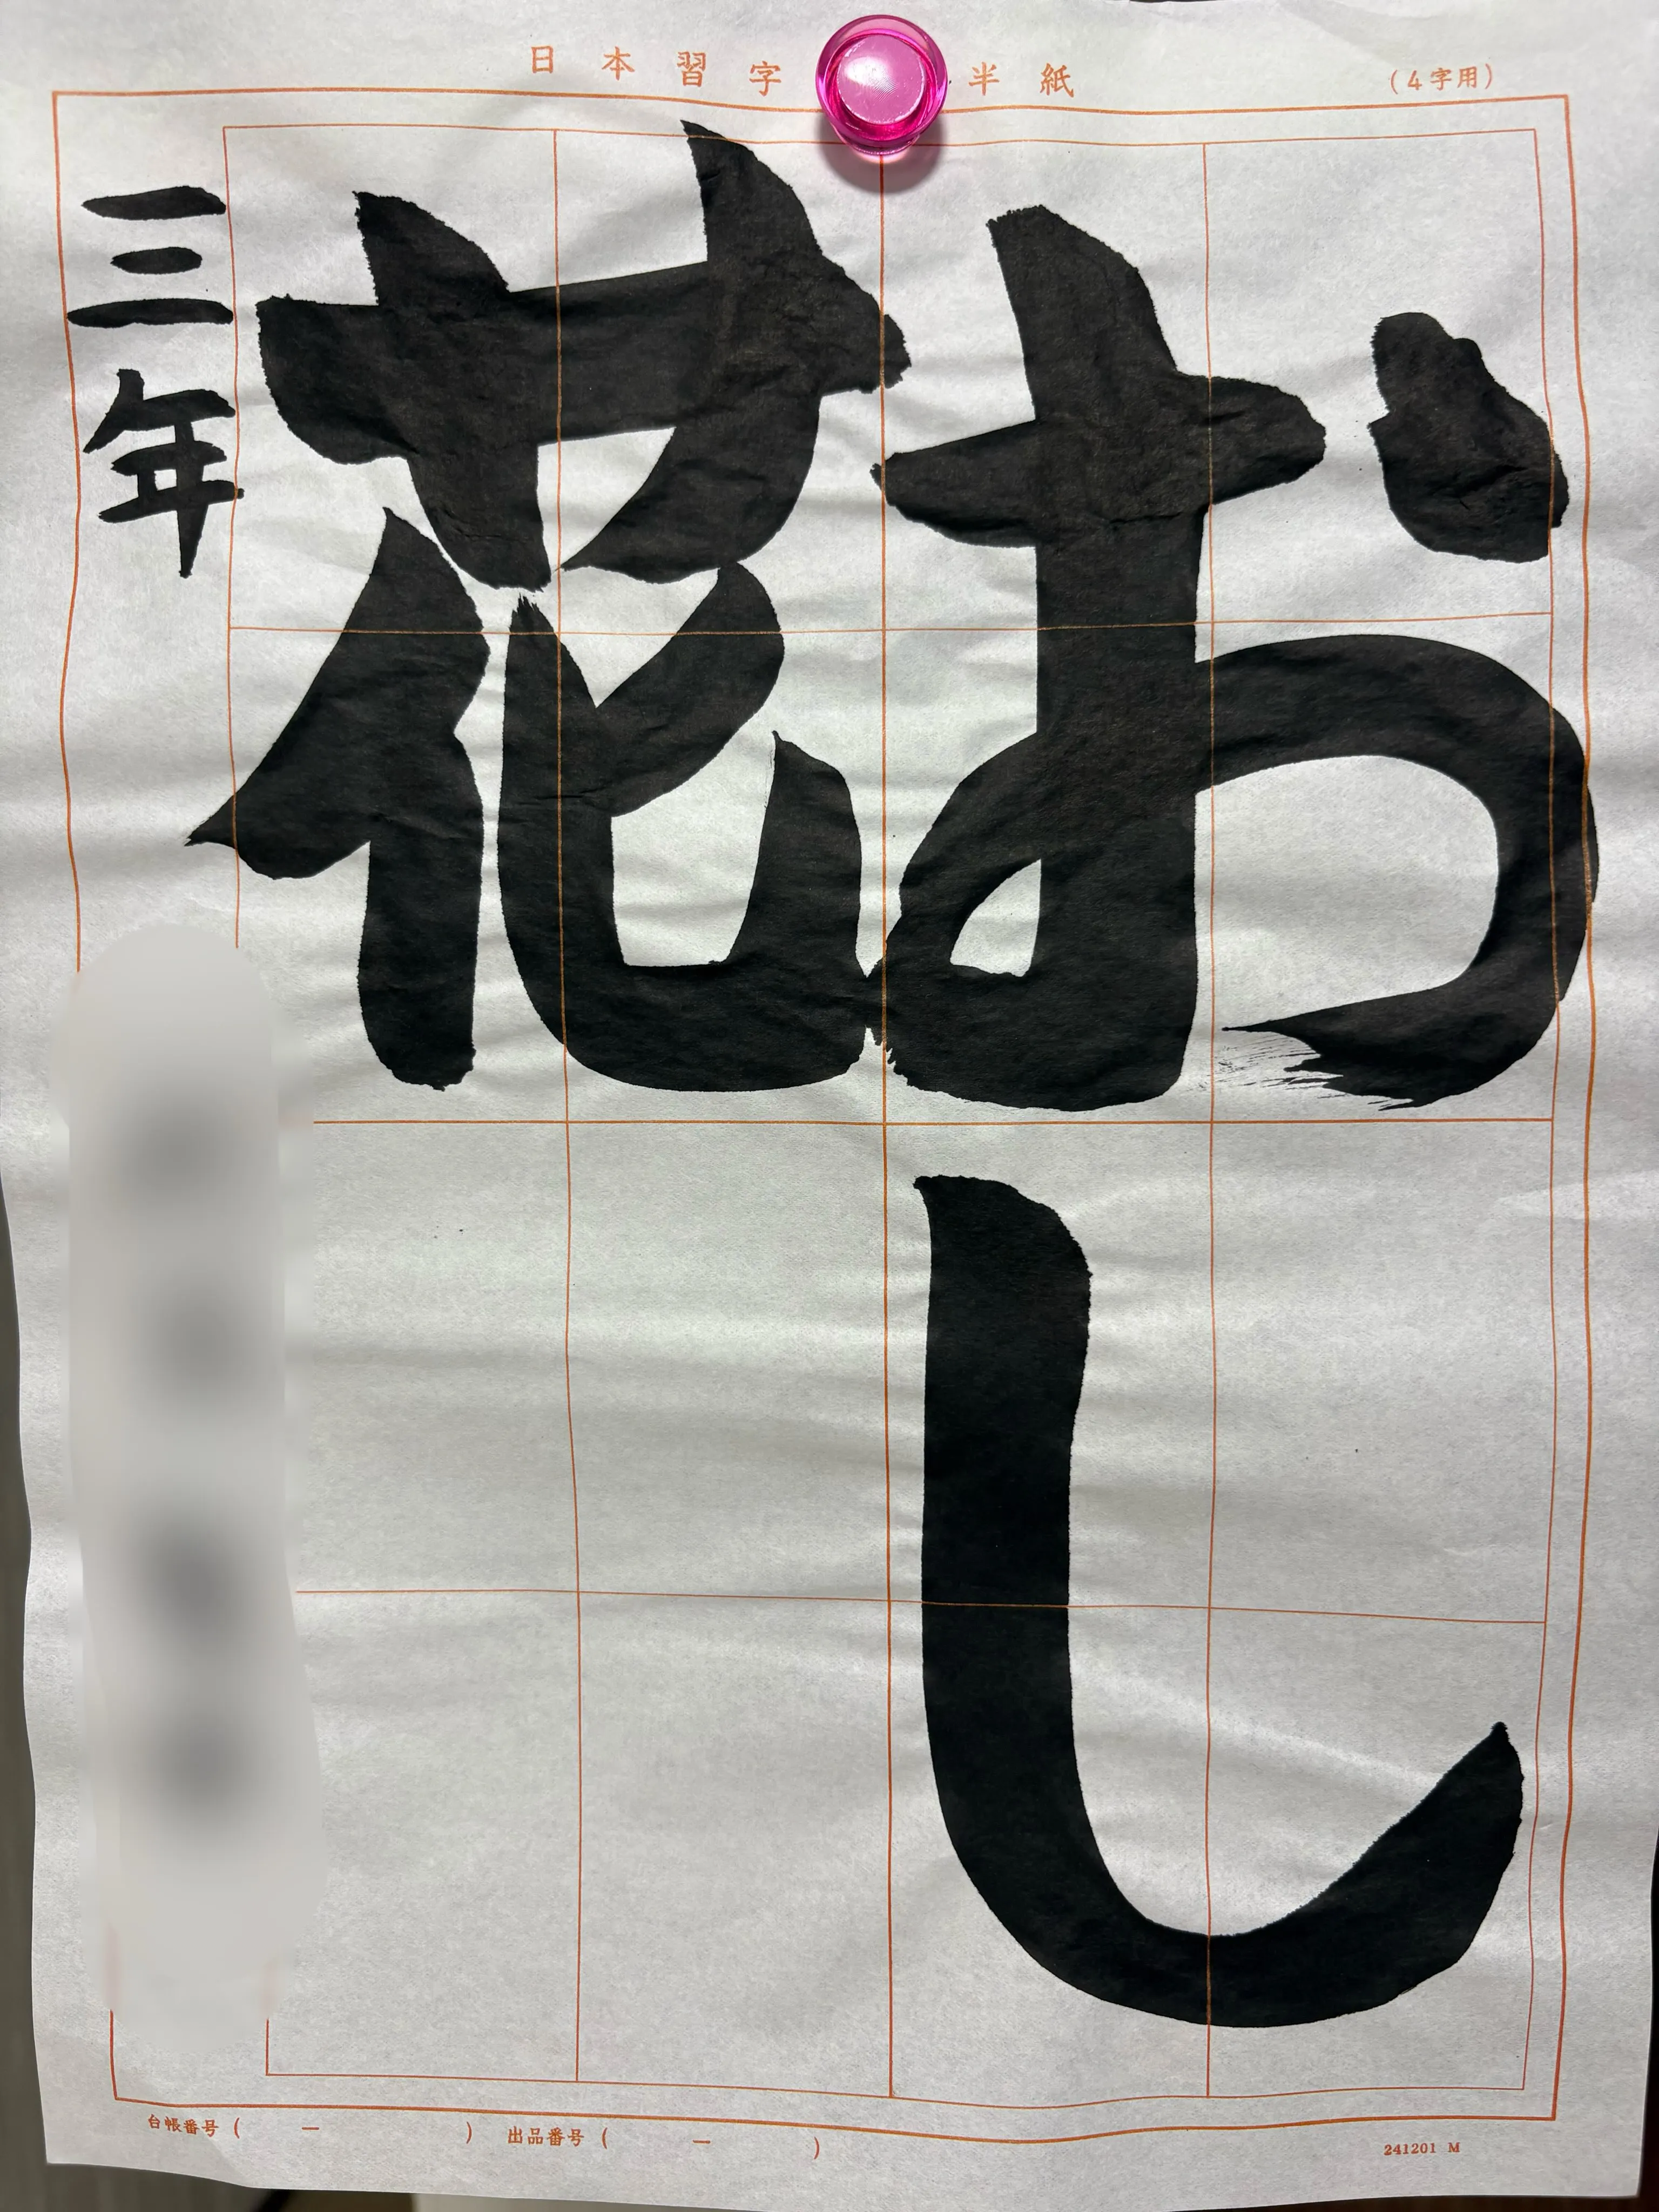 日本習字 半紙
(4字用)
おし
花
三年
台帳番号( ー ) 出品番号( ー )
241201 M